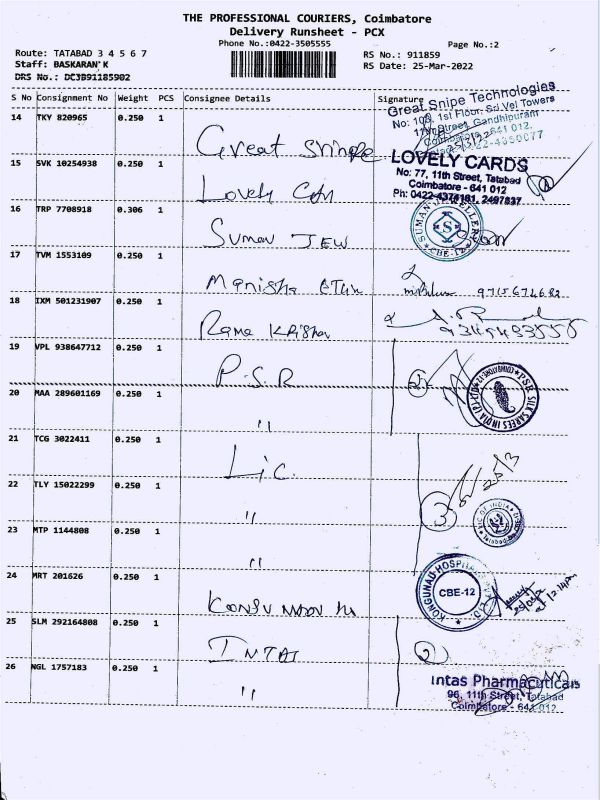 THE PROFESSIONAL COURIERS, Coimbatore
Delivery Runsheet - PCX
Phone No.:0422-3505555
Page No.:2
Route: TATABAD 3 4 5 6 7
Staff: BASKARAN K
DRS No.: DC3B91185902
RS No.: 911859
RS Date: 25-Mar-2022
S No Consignment No Weight PCS Consignee Details Signature
14 TKY 820965 0.250 1 Great Snipe
Great Snipe Technologies
No: 108, 1st Floor, Sri Vel Towers
11th Street, Gandhipuram
Coimbatore - 641 012.
15 SVK 10254938 0.250 1 Lovely
LOVELY CARDS
No: 77, 11th Street, Tatabad
Coimbatore - 641 012
Ph: 0422-4378191, 2497837
16 TRP 7708918 0.306 1 Suman JEW
SUMAN JEWELLERY
S
CBE-12
17 TVM 1553109 0.250 1 Manisha
9715674682
18 IXM 501231907 0.250 1 Rama Krishna
19 VPL 938647712 0.250 1 P.S.R
2
PSR SILK SAREES INDIA (P) LTD
COIMBATORE-12
20 MAA 289601169 0.250 1 "
21 TCG 3022411 0.250 1 Lic.
25/3
22 TLY 15022299 0.250 1 "
3
LIC OF INDIA
23 MTP 1144808 0.250 1 "
24 MRT 201626 0.250 1
KONGUNAD HOSPITAL PVT LTD
CBE-12
25 SLM 292164808 0.250 1 INTAS
2
26 NGL 1757183 0.250 1 "
Intas Pharmaceuticals
96, 11th Street, Tatabad
Coimbatore - 641 012